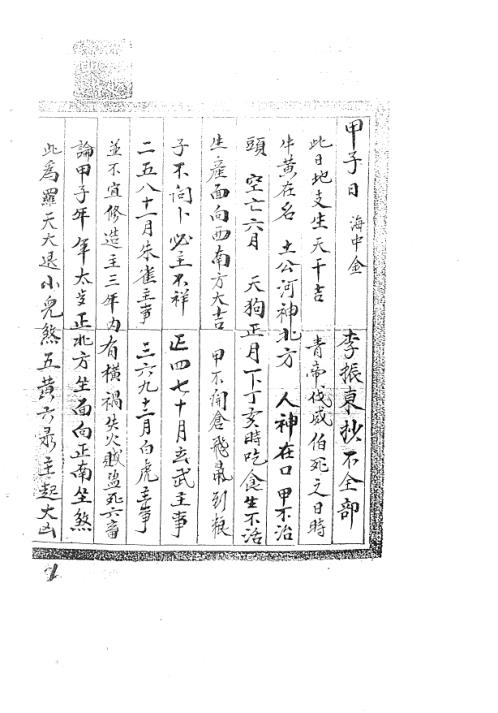 甲子日 海中金 李振東抄不全部
此日地支生天干吉 青帝伐威伯死之日時
牛黄在名 土公河神北方 人神在口 甲不治
頭 空亡六月 天狗正月下丁亥時吃食生不活
生産面向西南方大吉 甲不開倉飛鼠到粮
子不问卜必主不祥 正四七十月玄武主事
二五八十一月朱雀主事 三六九十二月白虎主事
並不宜修造主三年内有横禍失火賊盗死六畜
論甲子年年太岁正北方坐面向正南坐煞
此為羅天大退小兒煞五黄六泉主起大凶